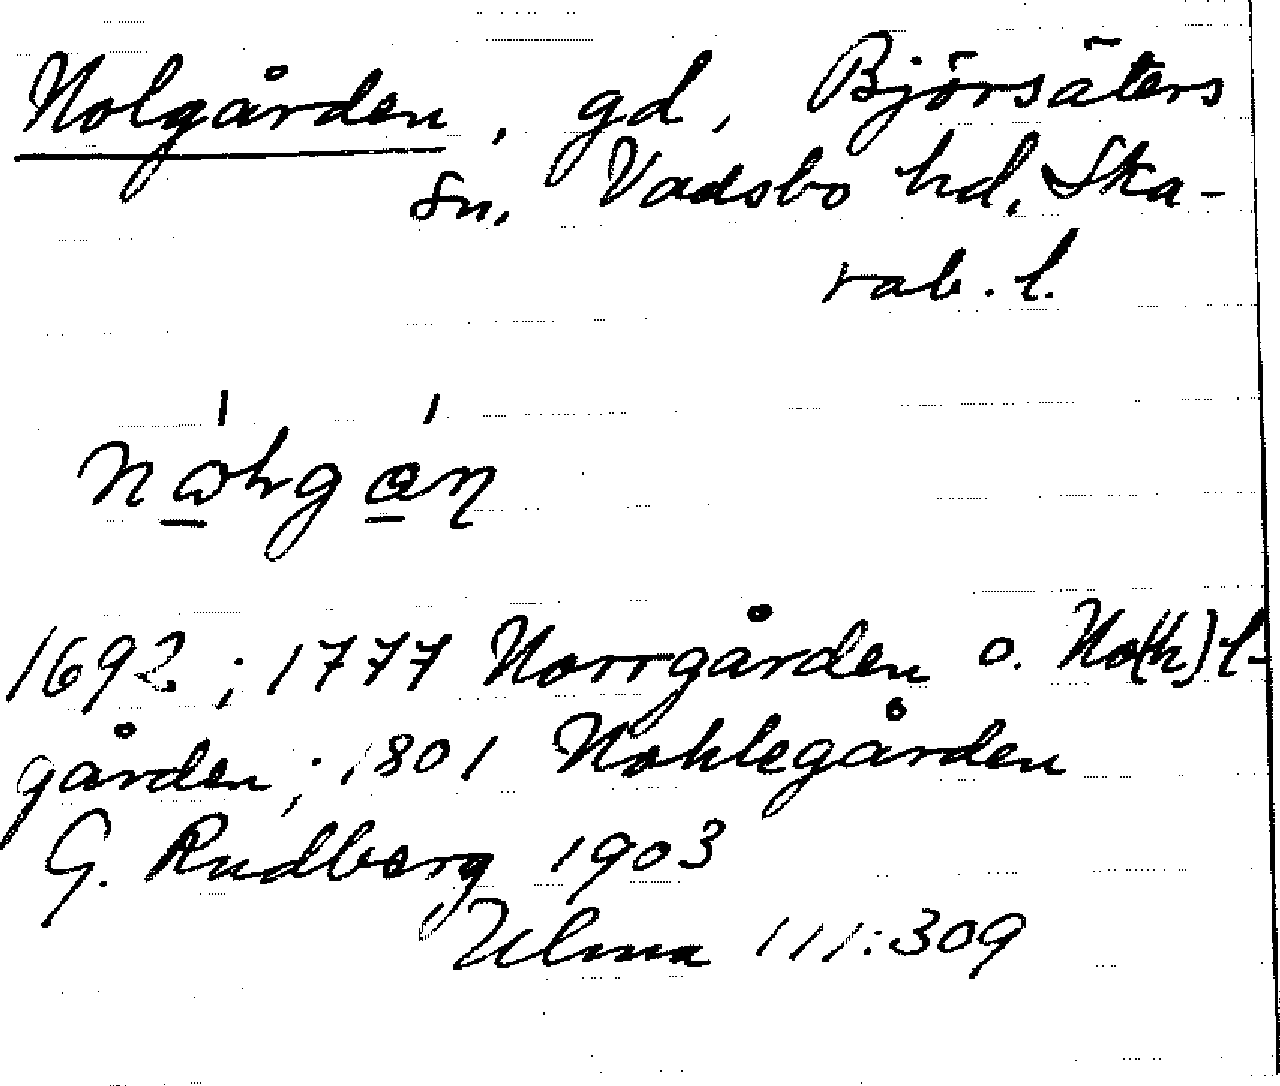 Nolgården, gd, Björsäters
sn, Vadsbo hd, Ska-
rab. l.
1692; 1777 Norrgården o. No(h)l-
gården; 1801 Nohlegården
G. Rudberg 1903
Ulma 111:309